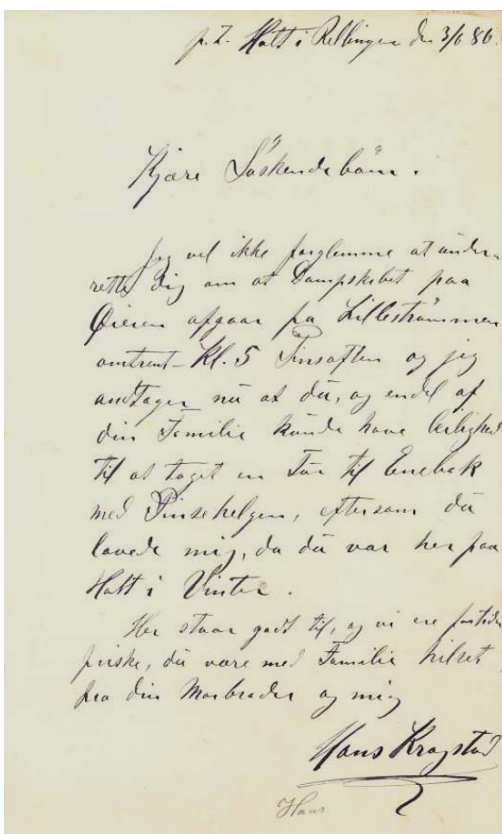 p. T. Hatt i Rællingen den 3/6 86.
Kjære Søskendebarn.
Jeg vil ikke forglemme at under-
rette dig om at Dampskibet paa
Øieren afgaar fra Lillestrømmen
omtrent Kl. 5 Pinsaften og jeg
antager nu at du, og endel af
din Familie kunde have leilighed
til at taget en Tur til Enebak
med Pinsehelgen, eftersom du
lovede mig, da du var her paa
Hatt i Vinter.
Her staar godt til, og vi ere
friske, du være med Familie hilset
fra din Morbroder og mig
Hans Kragstad
Hans